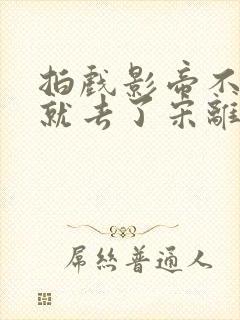 拍戲影帝不
就去了宋離
屌絲普通人